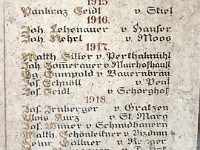 1915.
Pankraz Seidl v Stiol
1916.
Joh. Lehenauer v Hauser
Joh. Kehrl v Moos
1917.
Matth Siller v Perthalmühl
Joh Somerauer v Mairhofhäusl
Gg. Rumpold v Bauernbräu
Jos Schnöll v Post
Jos Seidl v Schörghof
1918
Jos Irnberger v Gratzen
Alois Kurz v St. Marg
Jos. Winter v Schmidbauern
Matth Schönleitner v
Heinr Göllner v